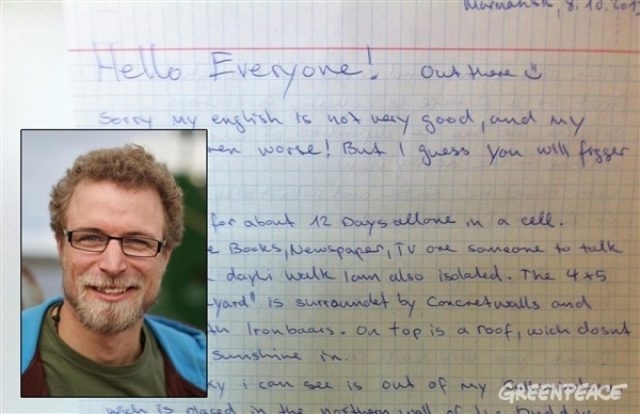 Murmansk, 8.10.201
Hello Everyone! Out there
Sorry my english is not very good, and my
worse! But I guess you will figger
for about 12 Days allone in a cell.
Books, Newspaper, TV ore someone to talk
dayli walk I am also isolated. The 4*5
yard" is surroundet by Concretwalls and
Ironbaars. On top is a roof, wich dosnt
sunshine in.
i can see is out of my
wich is placed in the northern wall of the
GREENPEACE